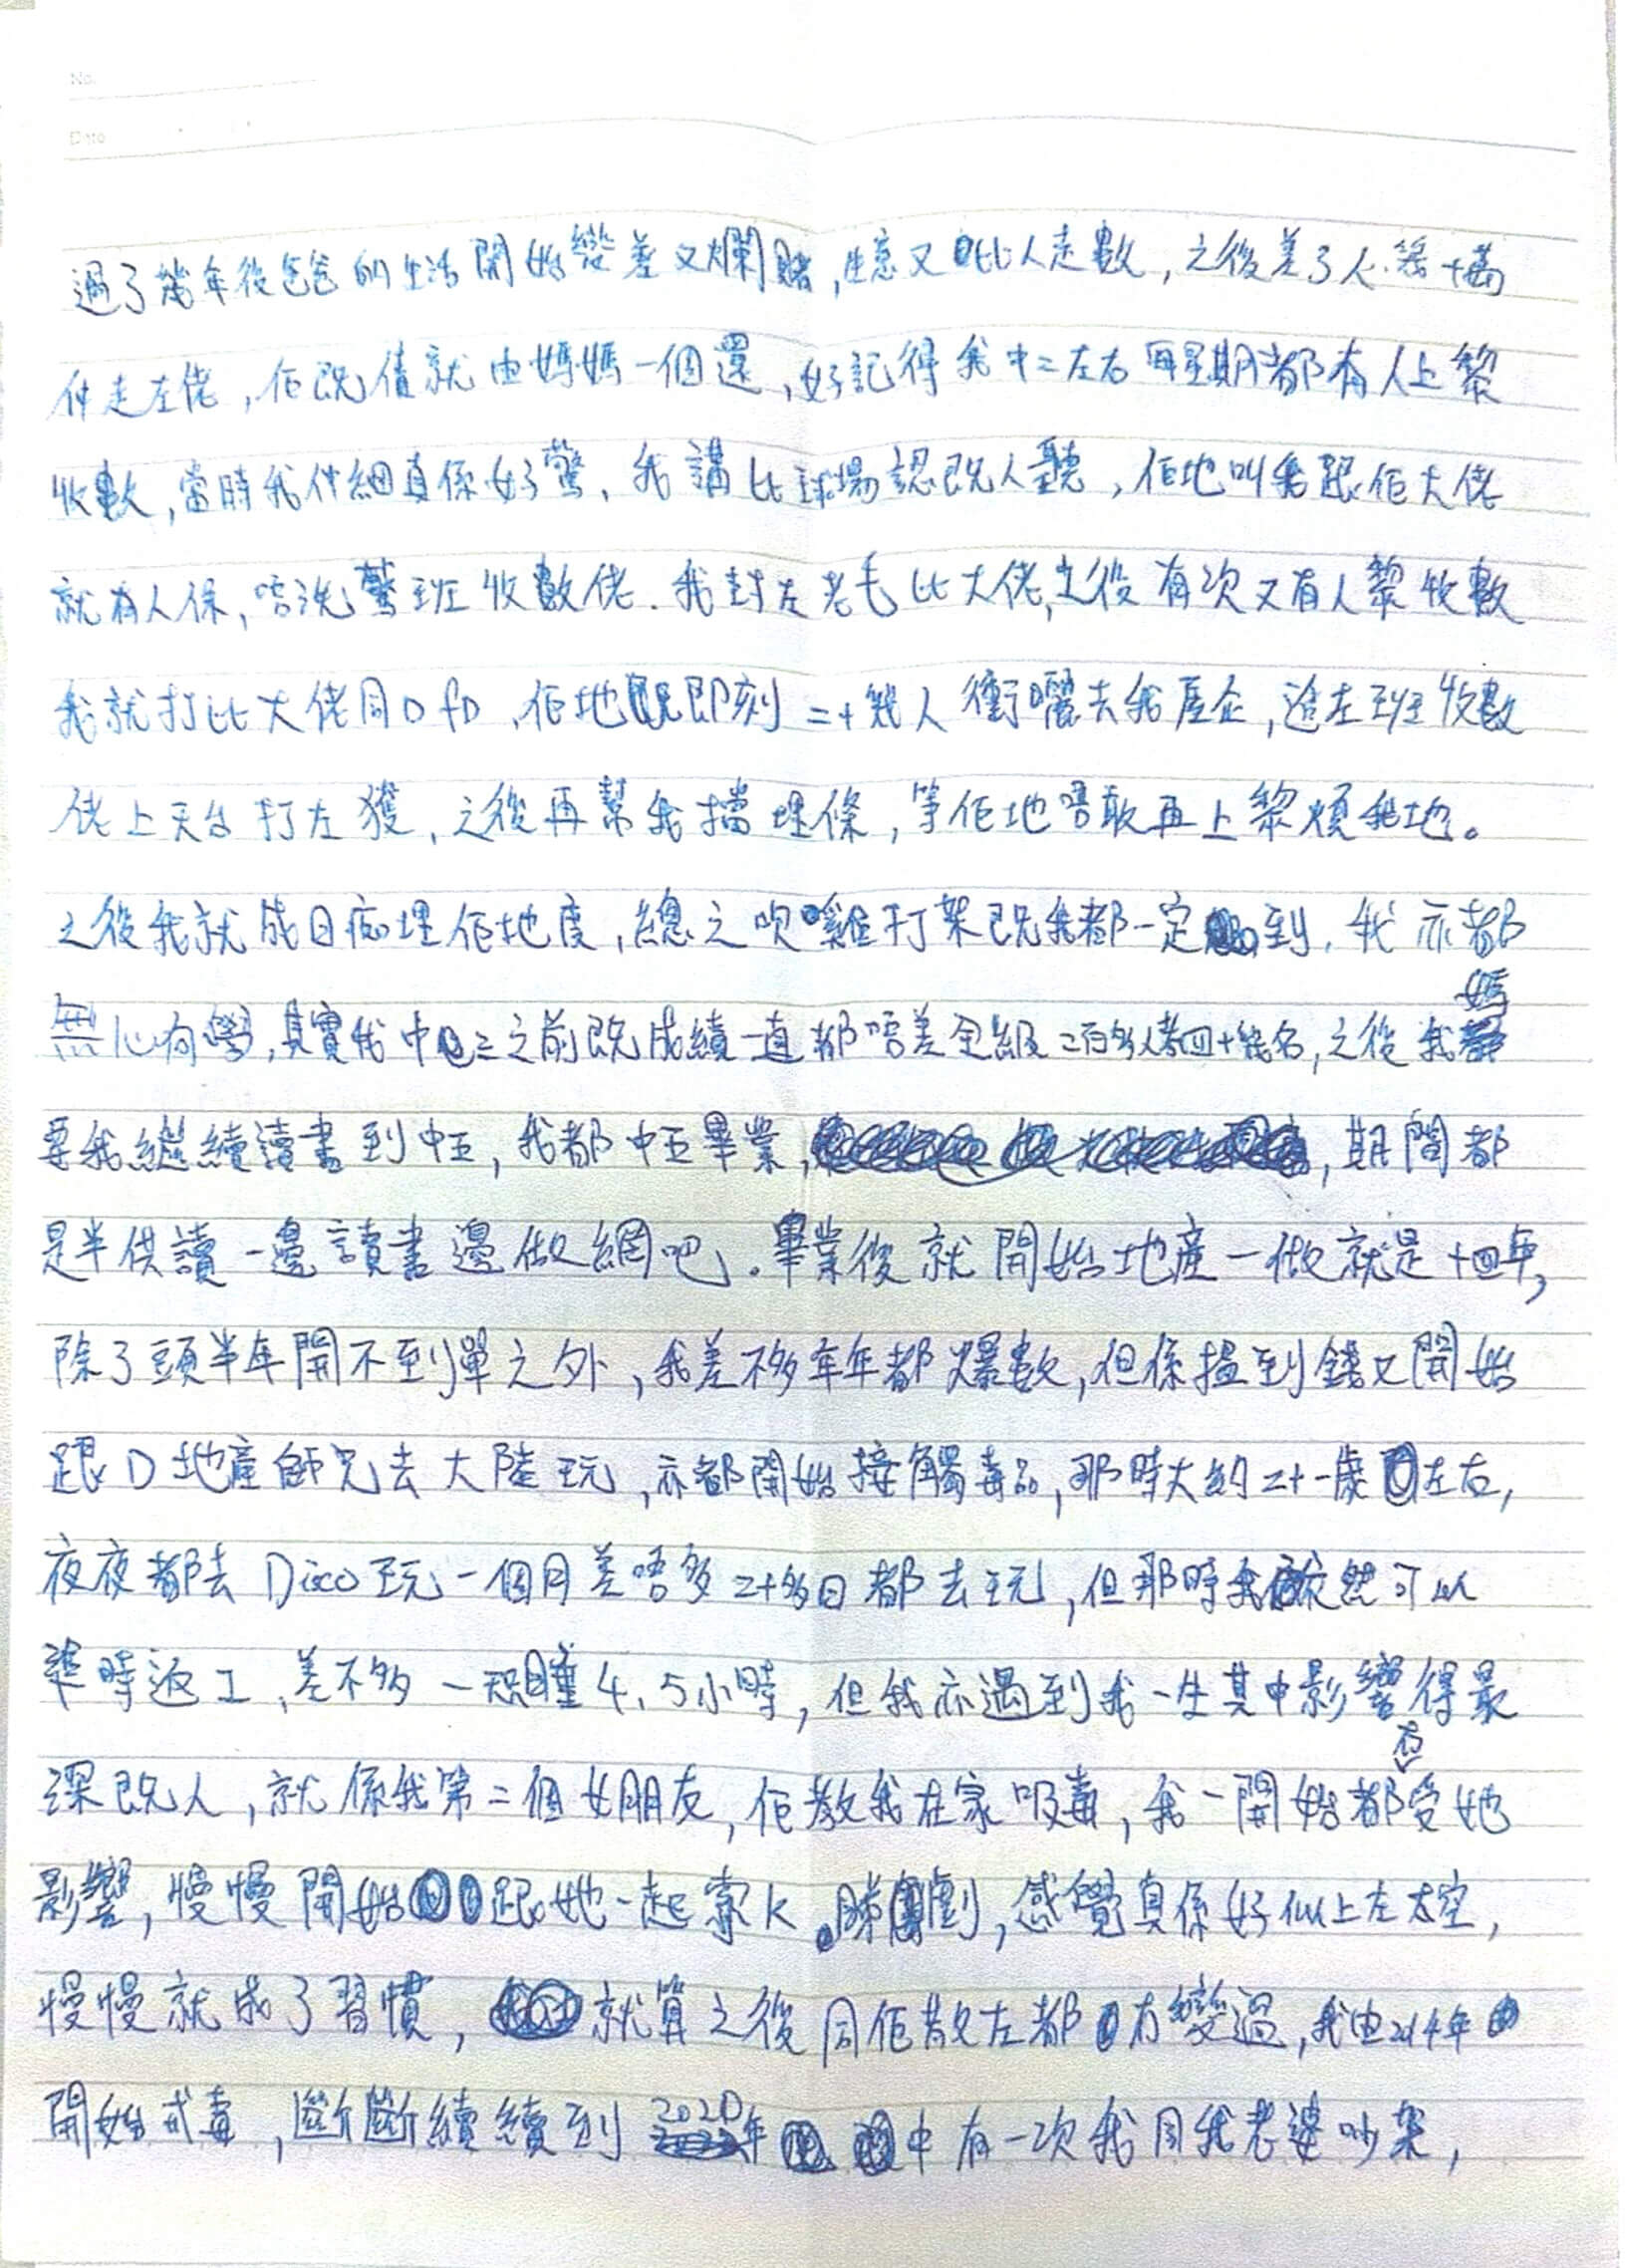 No.
Date
過了幾年後爸爸的生活開始變差又爛賭,生意又比人走數,之後差了人幾十萬
仲走左佬,佢既債就由媽媽一個還,好記得我中二左右每星期都有人上黎
收數,當時我仲細真係好驚,我講比球場認既人聽,佢地叫我跟佢大佬
就有人保,唔洗驚班收數佬.我封左老毛比大佬,之後有次又有人黎收數
我就打比大佬同D fd,佢地既即刻二十幾人衝嚦去我屋企,追左班收數
佬上天台打左獲,之後再幫我擋埋條,等佢地唔敢再上黎煩我地。
之後我就成日痴埋佢地度,總之吹雞打架既我都一定到.我亦都
無心向學,其實我中三之前既成績一直都唔差全級二百多人考四十幾名,之後我媽
要我繼續讀書到中五,我都中五畢業,,期間都
是半供讀一邊讀書邊做網吧.畢業後就開始地產一做就是十四年,
除了頭半年開不到單之外,我差不多年年都爆數,但係搵到錢又開始
跟D地產師兄去大陸玩,亦都開始接觸毒品,那時大約二十一歲左右,
夜夜都去Disco玩一個月差唔多二十多日都去玩,但那時我依然可以
準時返工,差不多一晚睡4、5小時,但我亦遇到我一生其中影響得最
深既人,就係我第二個女朋友,佢教我在家吸毒,我一開始都冇受她
影響,慢慢開始跟她一起索K睇劇,感覺真係好似上左太空,
慢慢就成了習慣,就算之後同佢散左都冇變過,我由214年
開始戒毒,斷斷續續到2020年中有一次我同我老婆吵架,